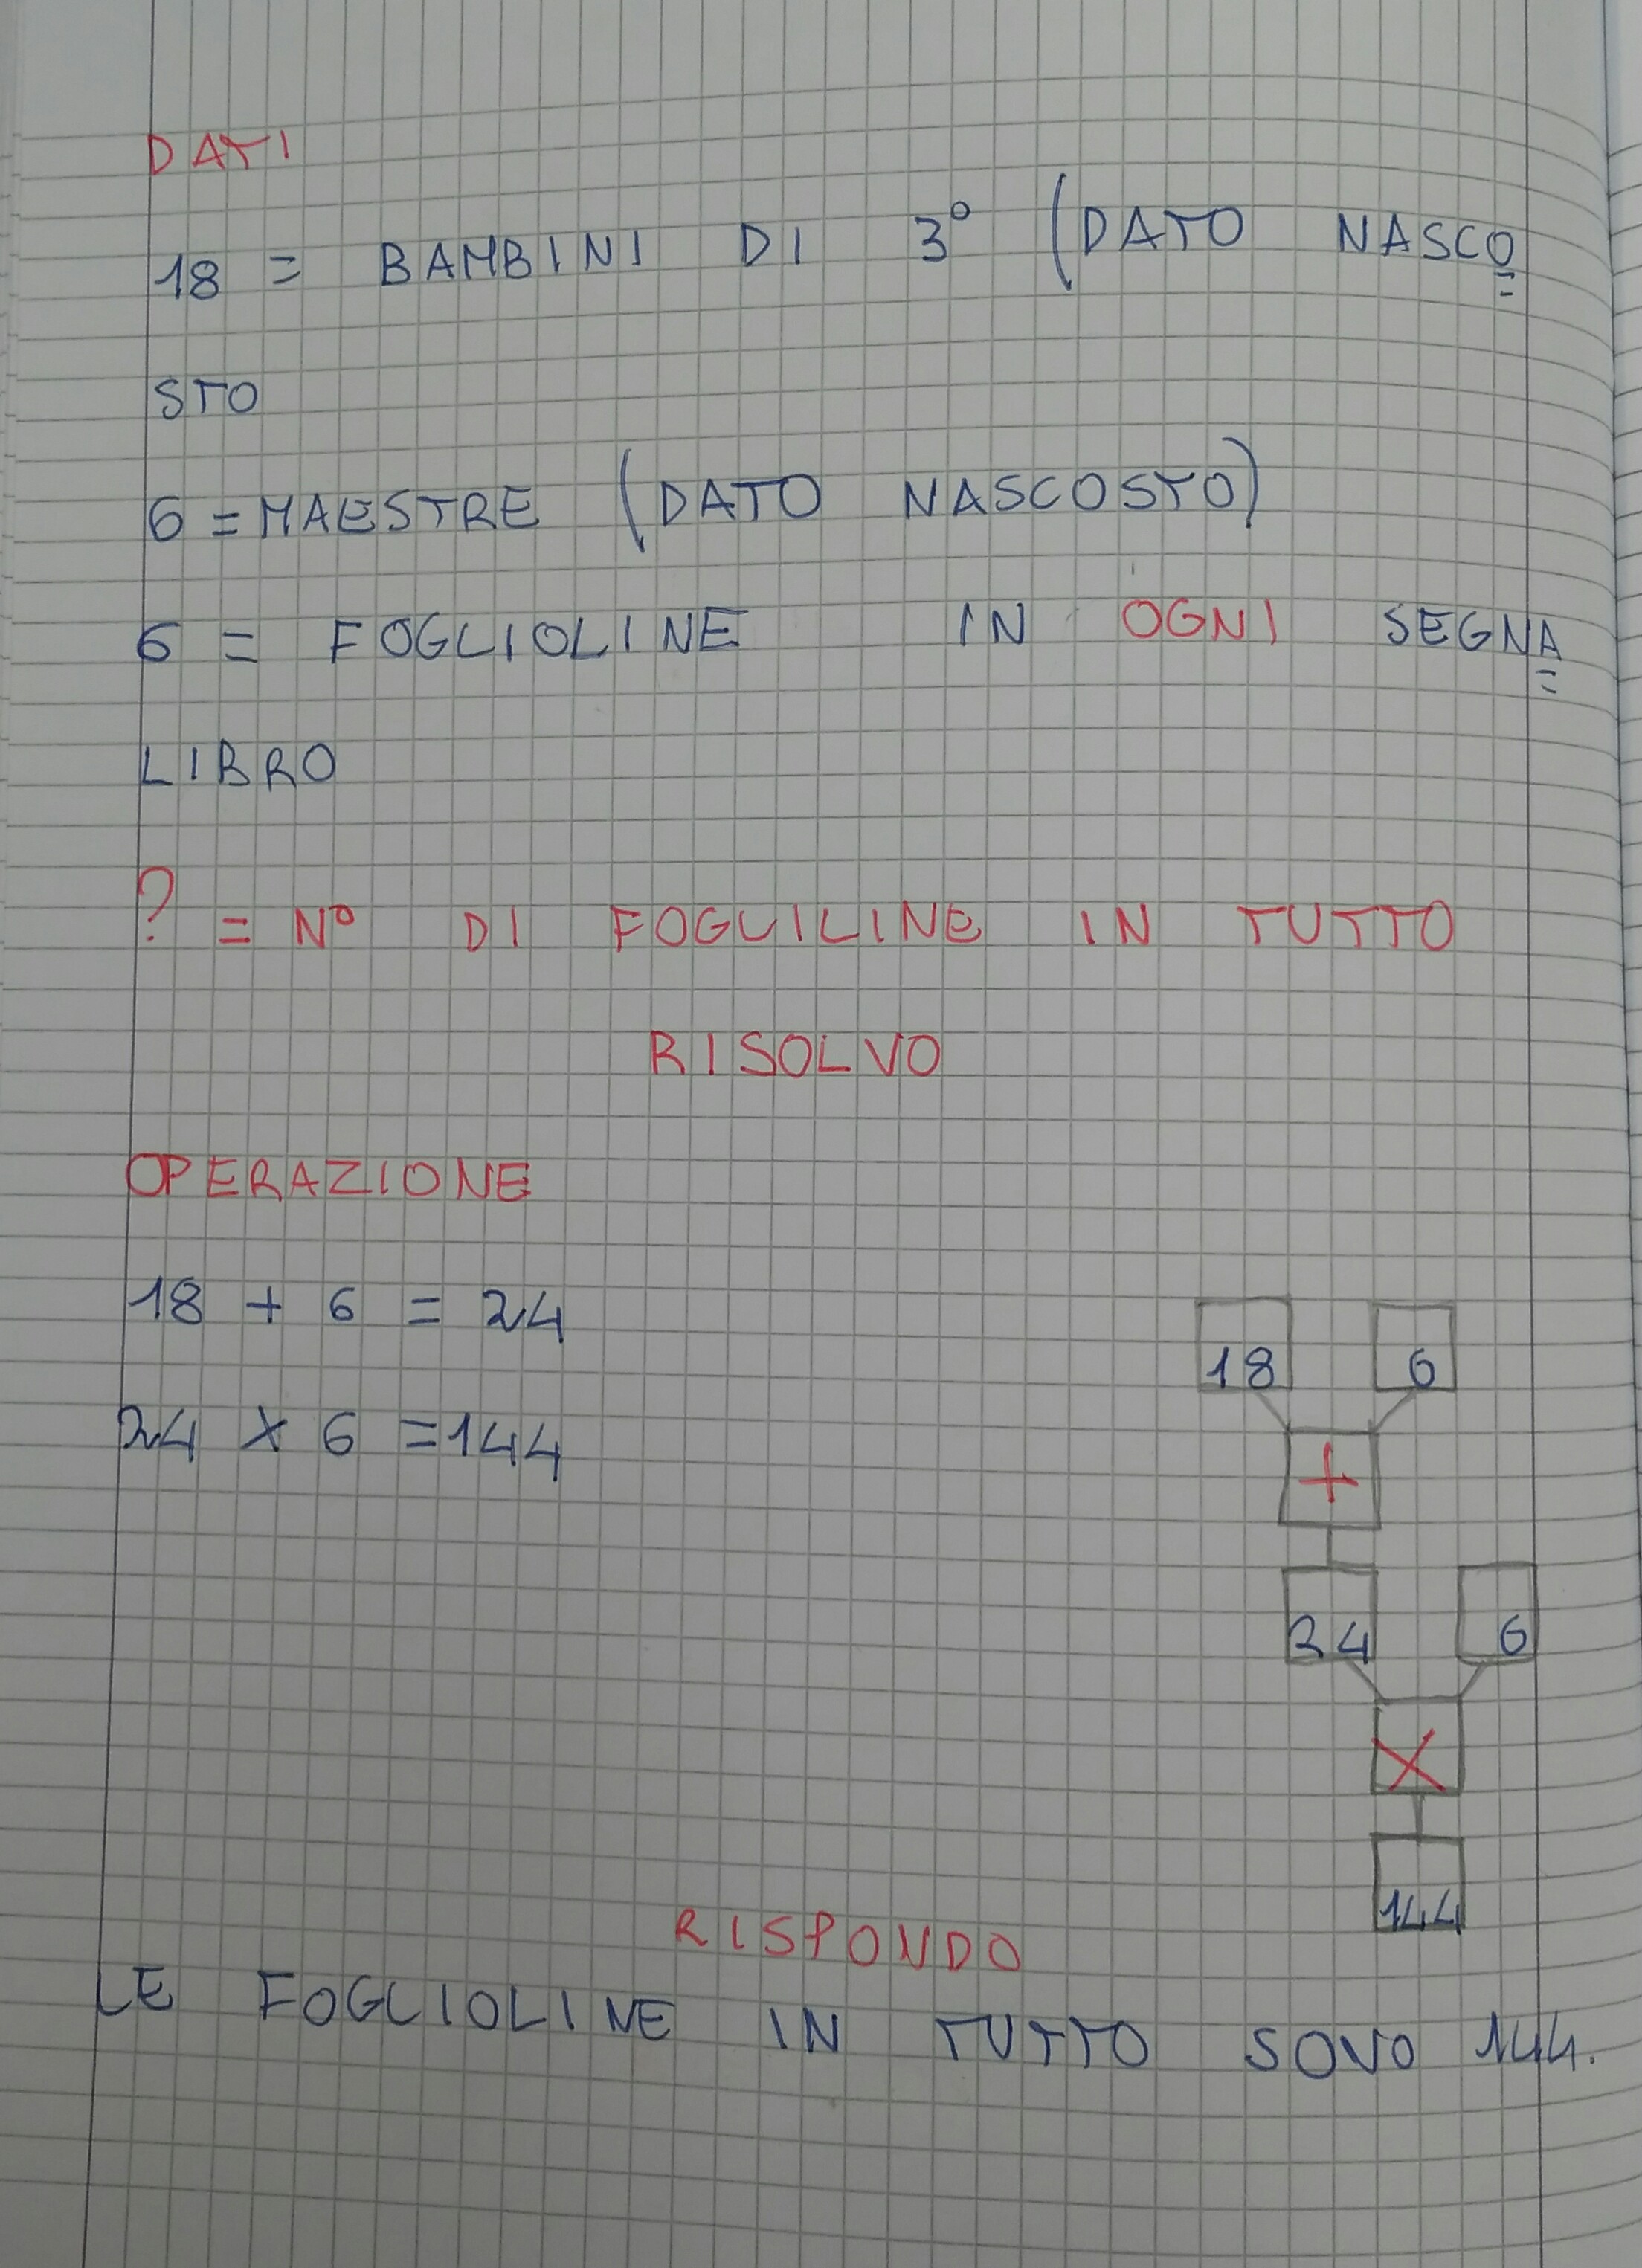 DATI
18 = BAMBINI DI 3° (DATO NASCO
STO
6 = MAESTRE (DATO NASCOSTO)
6 = FOGLIOLINE IN OGNI SEGNA
LIBRO
? = N° DI FOGLILINE IN TUTTO
RISOLVO
OPERAZIONE
18 + 6 = 24
24 X 6 = 144
18 6
+
24 6
X
144
RISPONDO
LE FOGLIOLINE IN TUTTO SONO 144.